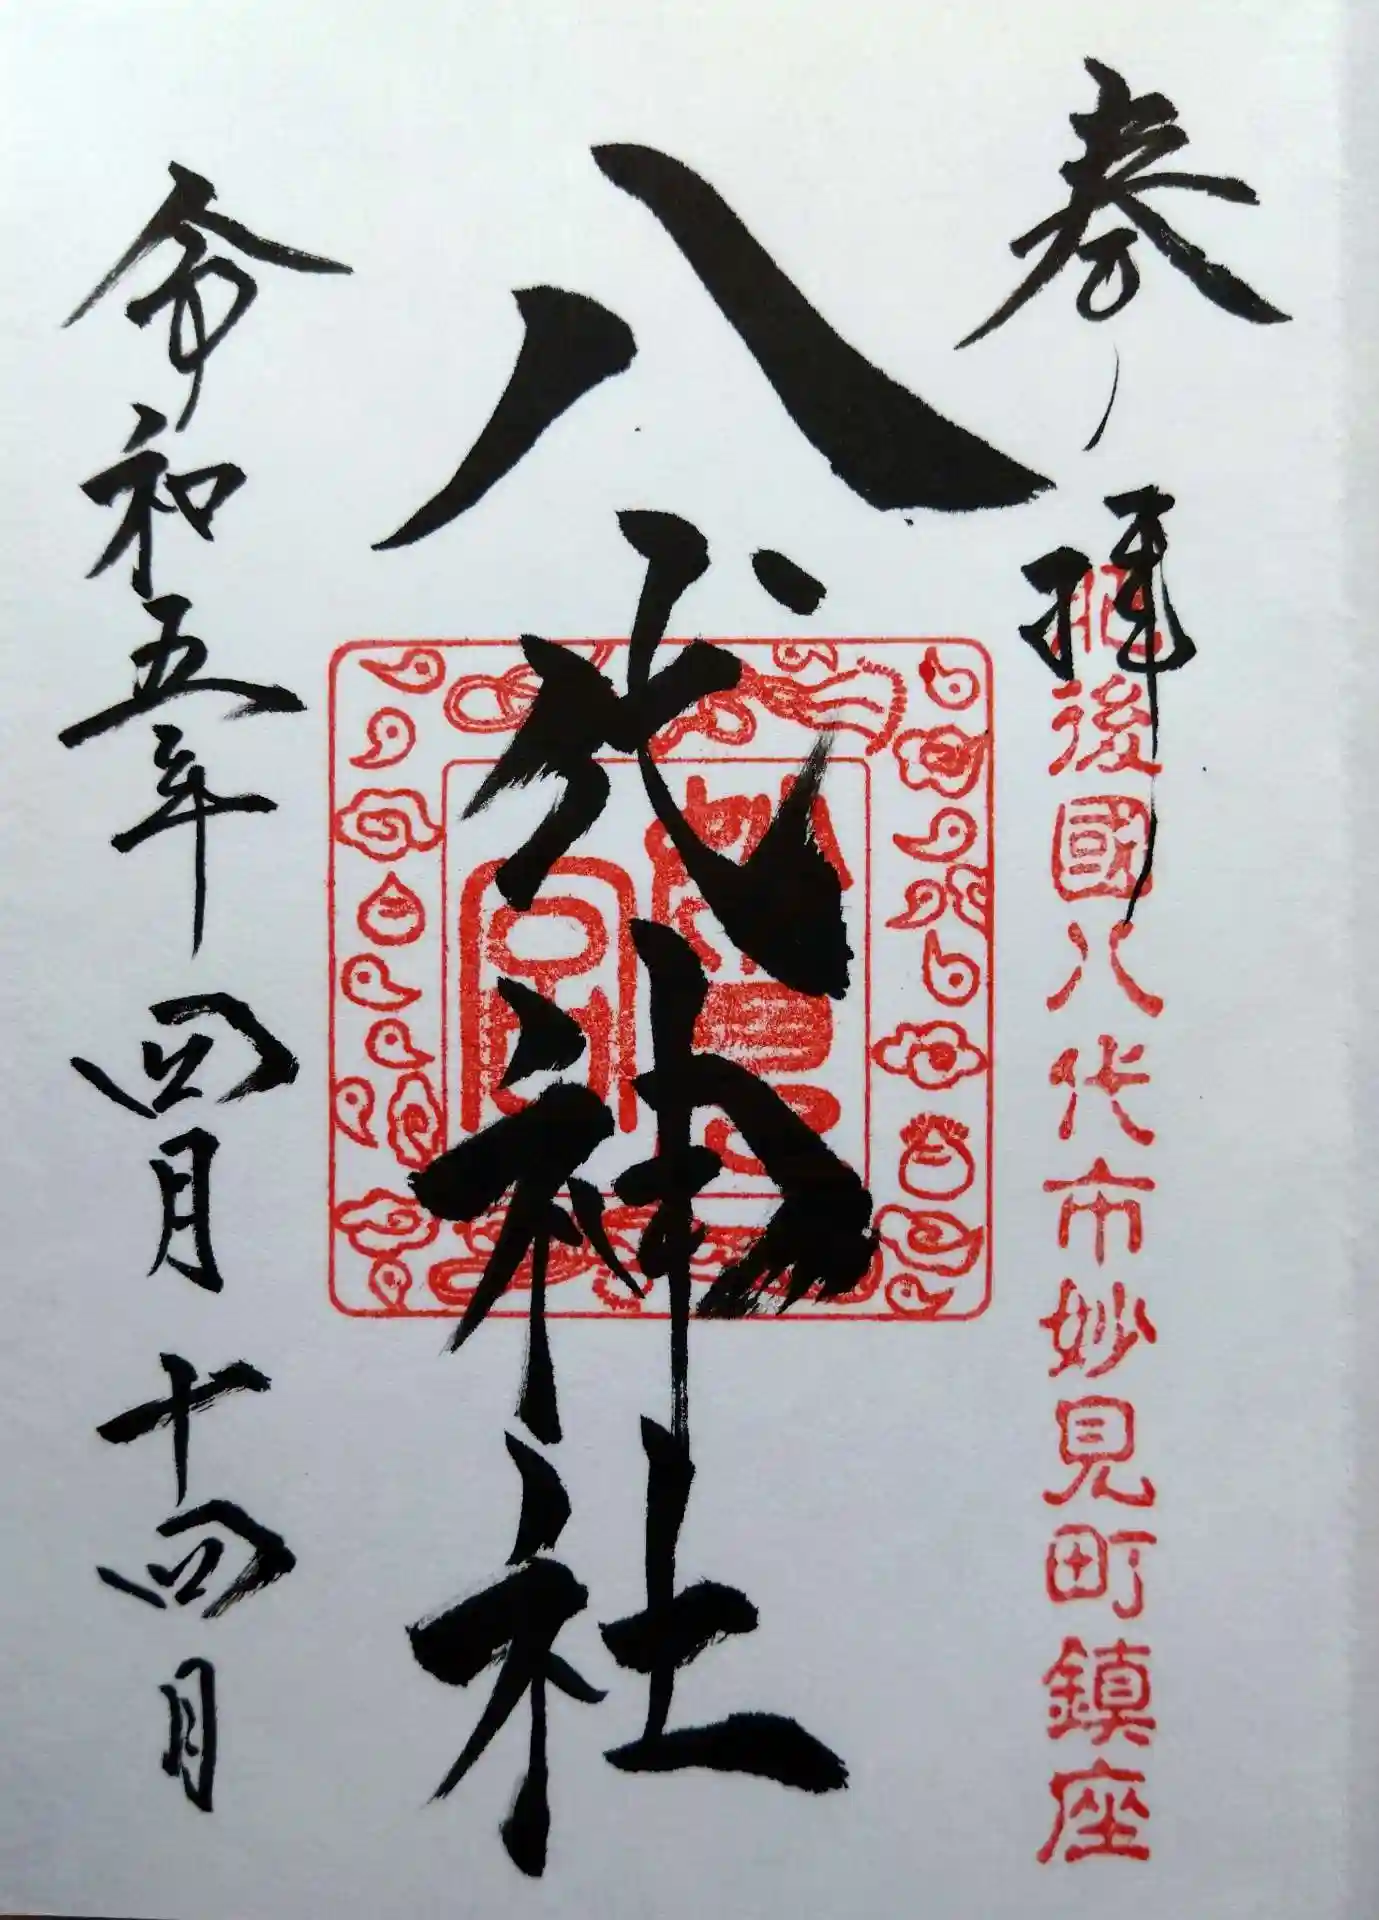 奉拝
肥後國八代市妙見町鎮座
八代神社
妙見宮
令和五年四月十四日